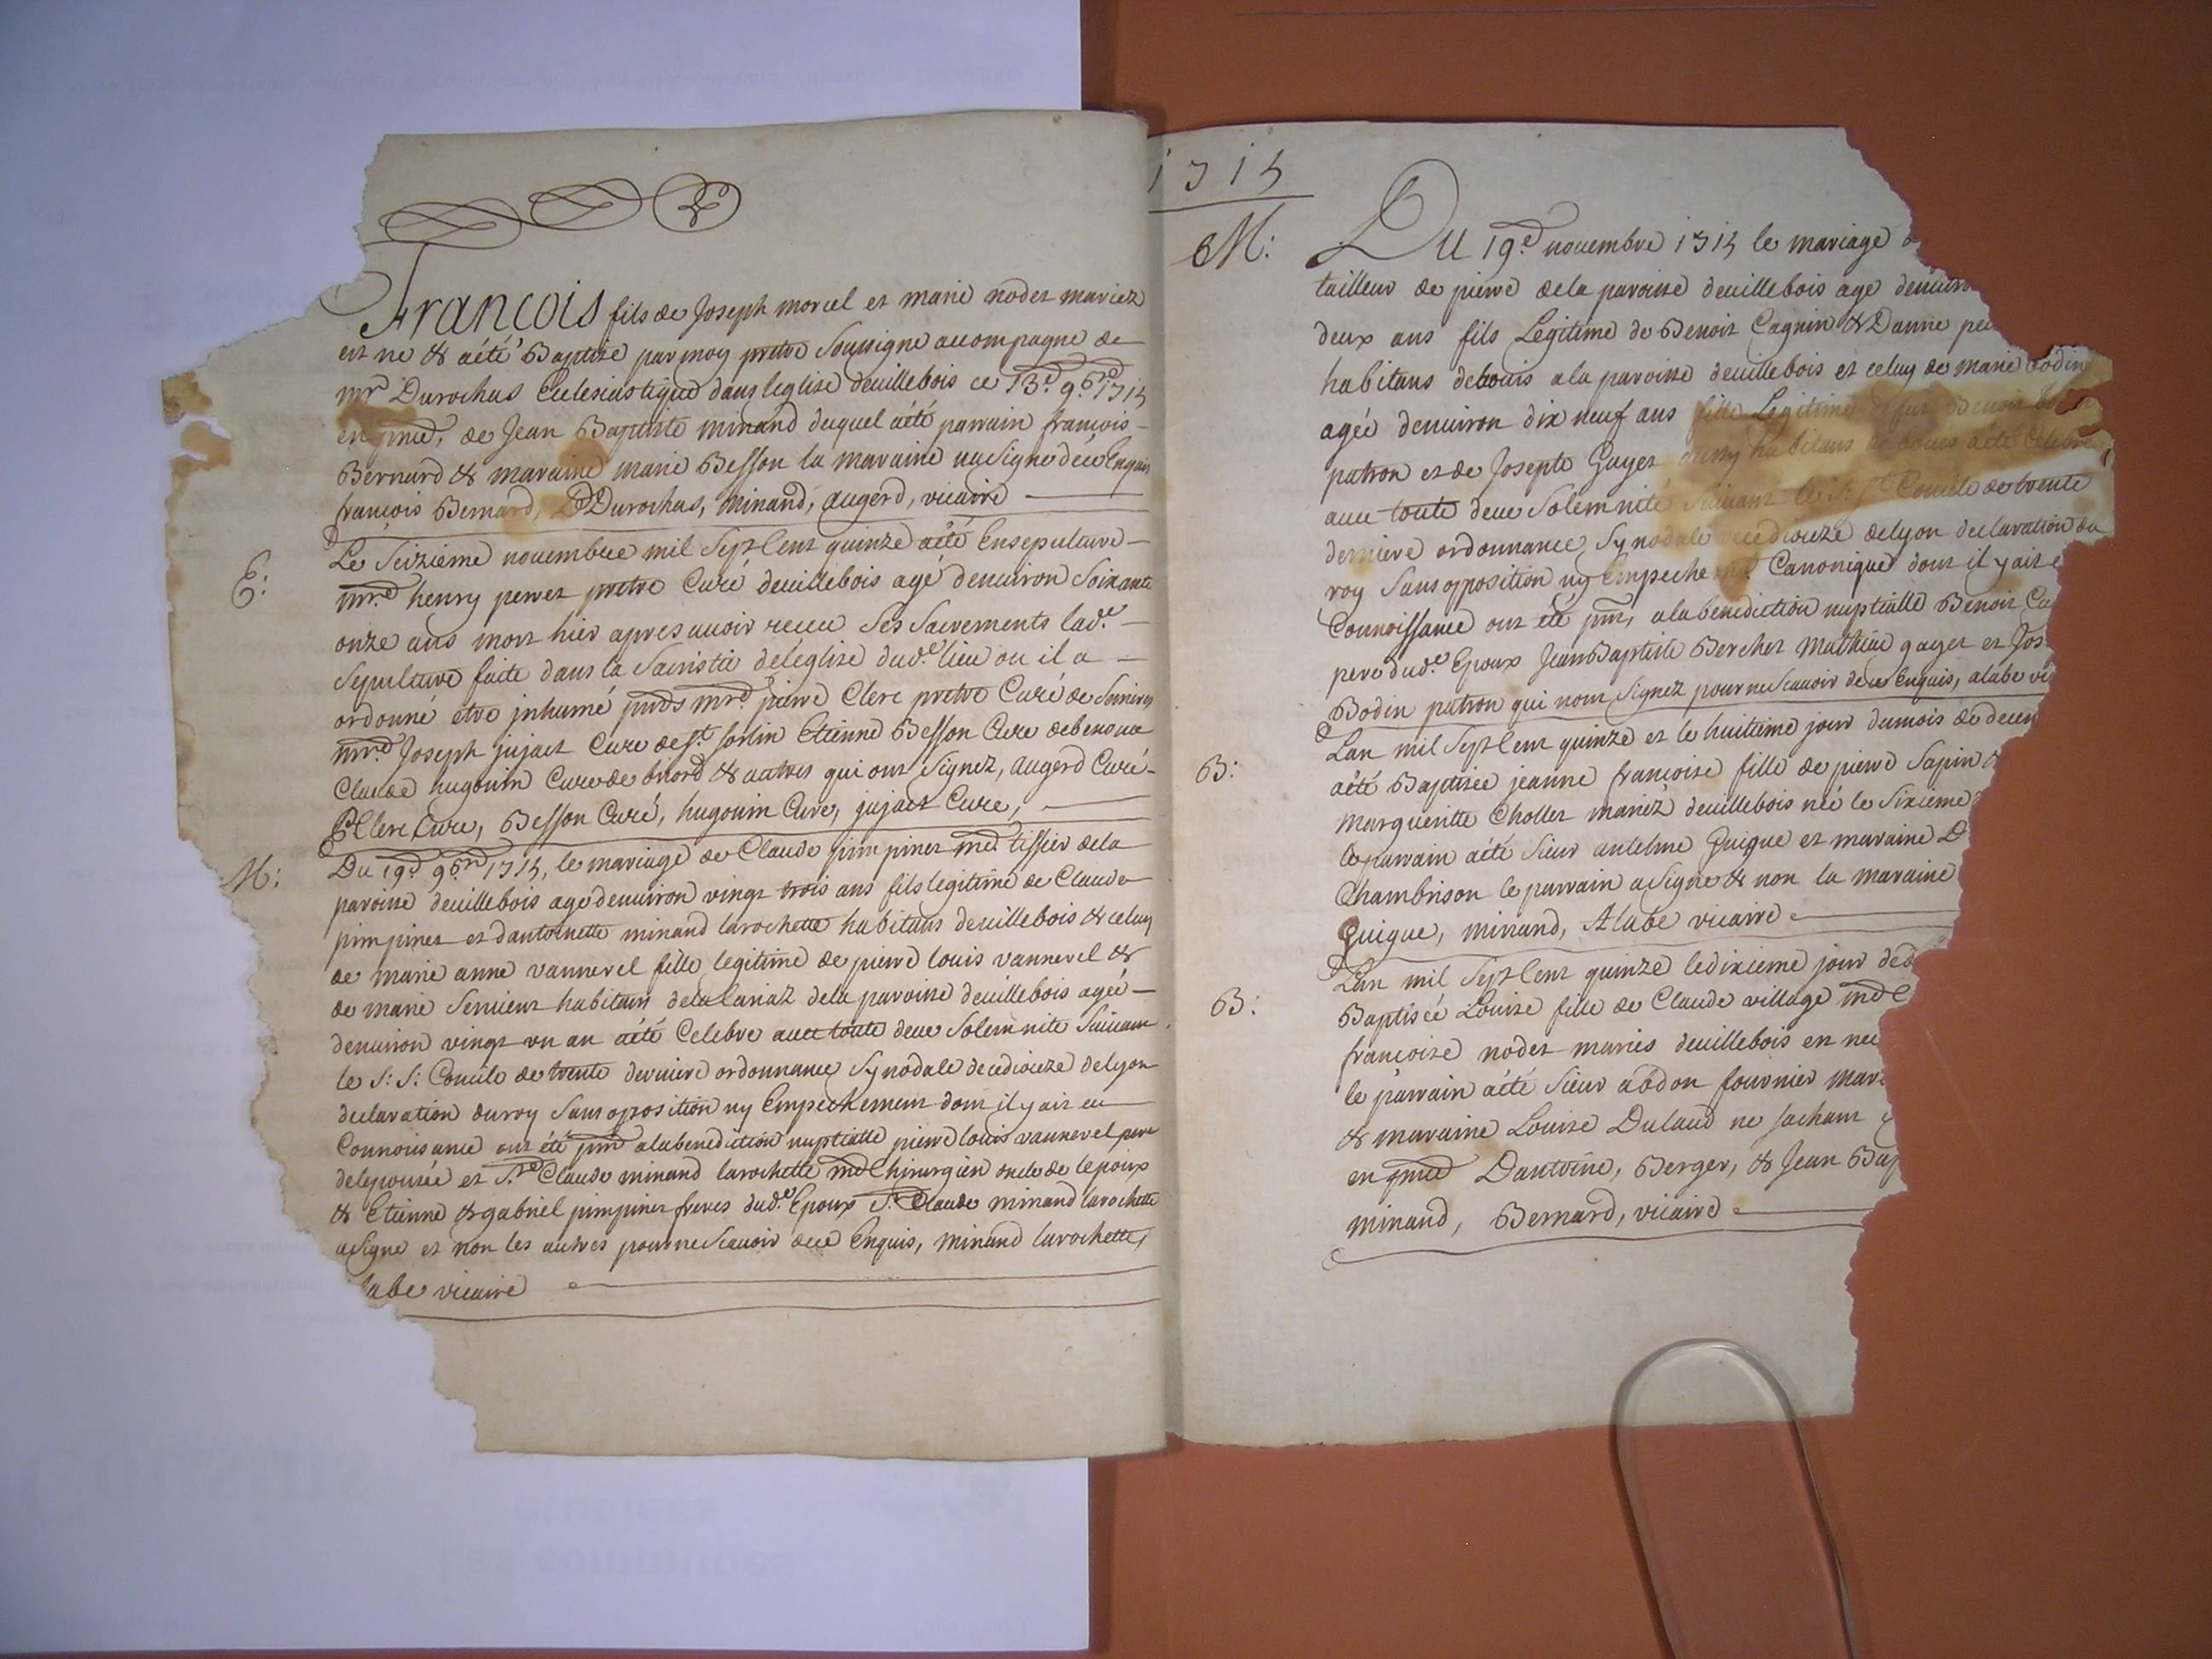 François fils de Joseph morcel et marie nodet mariez
est ne & aété Baptize par moy pretre Soussigne accompagne de
mr Durochas Eclesiastique dans leglise deuillebois ce 13e 9bre 1715
en pnce, de Jean Baptiste minand duquel aété parrain francois
Bernard & maraine marie Besson la maraine na Signe dece Enquis
françois Bernard, Durochas, minand, augerd, vicaire
E:
Le Seizieme nouembre mil Sept Cent quinze aété Ensepulturé
mre henry perret pretre Curé deuillebois agé denuiron Soixante
onze ans mort hier apres auoir receu Ses Sacrements lade
Sepulture faite dans la Sacristie deleglize dude lieu ou il a
ordonné etre jnhumé pnds mre pierre Clerc pretre Curé de
mre Joseph jujat Cure de st Sorlin Etienne Besson Cure debenoua
Claude hugouin Cure de briord & autres qui ont Signez, augerd Curé
PClerc Cure, Besson Curé, hugouin Cure, jujat Cure,
M:
Du 19e 9bre 1715, le mariage de Claude pimpinet md tissier dela
paroisse deuillebois age denuiron vingt trois ans fils legitime de Claude
pimpinet et dantoinette minand larochette habitans deuillebois & celuy
de marie anne vannerel fille legitime de pierre louis vannerel &
de marie Semieur habitans dela Cariaz dela paroisse deuillebois agée
denuiron vingt vn an aété Celebre auec toute deue Solemnite Suiuant
le S: S: Concile de trente derniere ordonnance Synodale decedioceze delyon
declaration duroy Sans oposition ny Empechement dont il y ait eu
Connoisance ont été pnt alabenediction nuptialle pierre louis vannerel pere
delepousée et Sr Claude minand larochette md Chirurgien oncle de lepoux
& Etienne & gabriel pimpinet freres dude Epoux Sr Claude minand larochette
a Signe et non les autres pour ne Scauoir dece Enquis, minand larochette,
labe vicaire
1715
M:
Du 19e nouembre 1715 le mariage
tailleur de pierre dela paroisse deuillebois age denuiro
deux ans fils Legitime de Benoit Cagnin & Danne
habitans debouis ala paroisse deuillebois et celuy de marie Bodin
agée denuiron dix neuf ans fille Legitime de fut Benoit
patron et de Josepte Gayet aussy habitans de bouis aété Celebre
auec toute deue Solemnité Suiuant le S: Se Concile de trente
derniere ordonnance Synodale decedioceze delyon declaration du
roy Sans opposition ny Empeche Canonique dont il y ait e
Connoissance ont été pnt, ala benediction nuptialle Benoit Ca
pere dude Epoux Jean Baptiste Berchet Mathieu gayet et Jos
Bodin patron qui nont Signez pour ne Scauoir dece Enquis, alabe vi
B:
Lan mil Sept Cent quinze et le huitieme jour dumois de decem
aété Baptisée jeanne francoise fille de pierre Sapin &
Marguerite Chollet mariez deuillebois née le Sixieme
le parrain aété Sieur antelme Guigue et maraine D
Chambrison le parrain a Signe & non la maraine
Guigue, minand, Alabe vicaire
B:
Lan mil Sept Cent quinze ledixieme jour dedé
Baptisée Louize fille de Claude village md C
francoise nodet mariés deuillebois et
le parrain aété Sieur abdon fournier mar
& maraine Louize Dulaud ne Sachant
en pnce Dantoine, Berger, & Jean Bap
minand, Bernard, vicaire